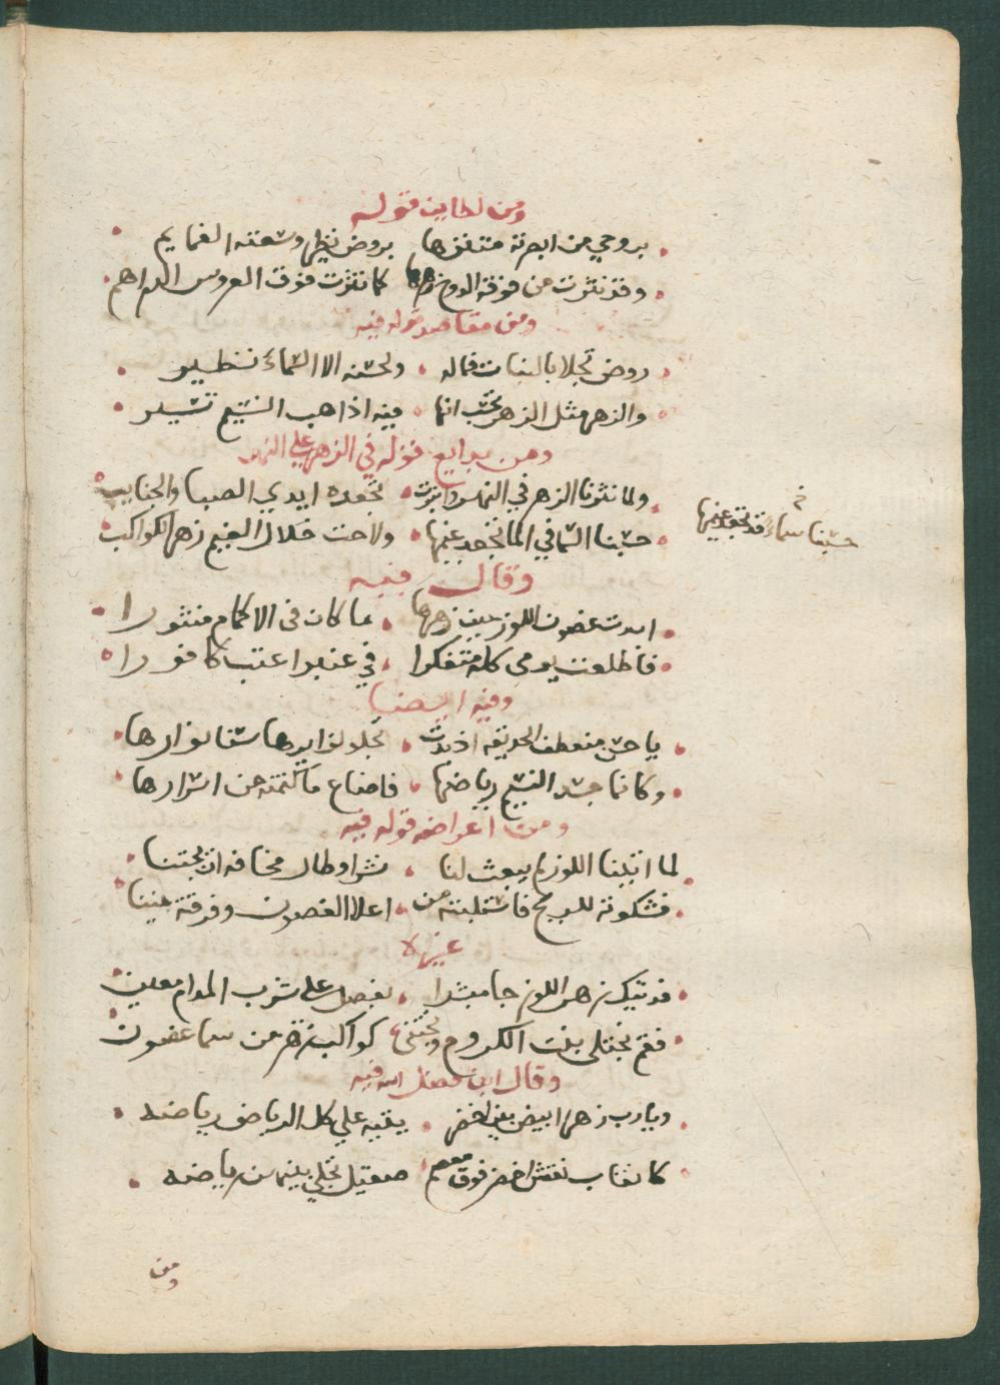 ومن لطايف قوله
بروحي من ابصرته متنزها بروض نظير وشعته الغمايم
وقد نثرت من فوقه الدوح زهرها كما نثرت فوق العروس الدراهم
ومن مقاصد قوله فيه
روض تجلا بالنبات فماله ولحسنه الا السماء نظير
والزهر مثل الزهر تحسب انما فيه اذا هب النسيم تسير
ومن بدايع قوله في الزهر على النهر
ولما نثرنا الزهر في النهر وانبرت تجعده ايدي الصبا والجنايب
حسبنا السما في الما تجعد غيمها ولاحت خلال الغيم زهر الكواكب
خ
حسبنا سماء قد تجعد غيمها
وقال فيه
ابدت غصون اللوز من زهرها ما كان في الاكمام منثورا
فاطلعت يومى كله متفكرا في عنبر اعتب كافورا
وفيه ايضا
يا حسن منعطف الحديقة اذ بدت تجلو لزايرها سنا نوارها
وكانما جسد النسيم رياضها فاضاع ما كتمته من اسرارها
ومن اغراضه قوله فيه
لما اتينا اللوز لم يبعث لنا نشرا وطال مخافة ان يجتنا
فشكوته للريح فاستلبته من اعلا الغصون وفرقته بيننا
غيره
فديتك زهر اللوز جا مبشرا بفصل على شرب المدام معين
فقم نجتلى بنت الكروم ونجتنى كواكب زهر من سما غصون
وقال ابن فضل الله فيه
ويا رب زهر ابيض بين اخضر يتيه علي كل الرياض رياضه
كانقاب نقش اخضر فوق معصم صقيل تجلي بينهن بياضه
ومن